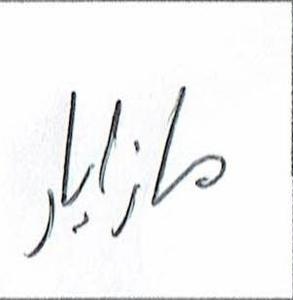 مازیار